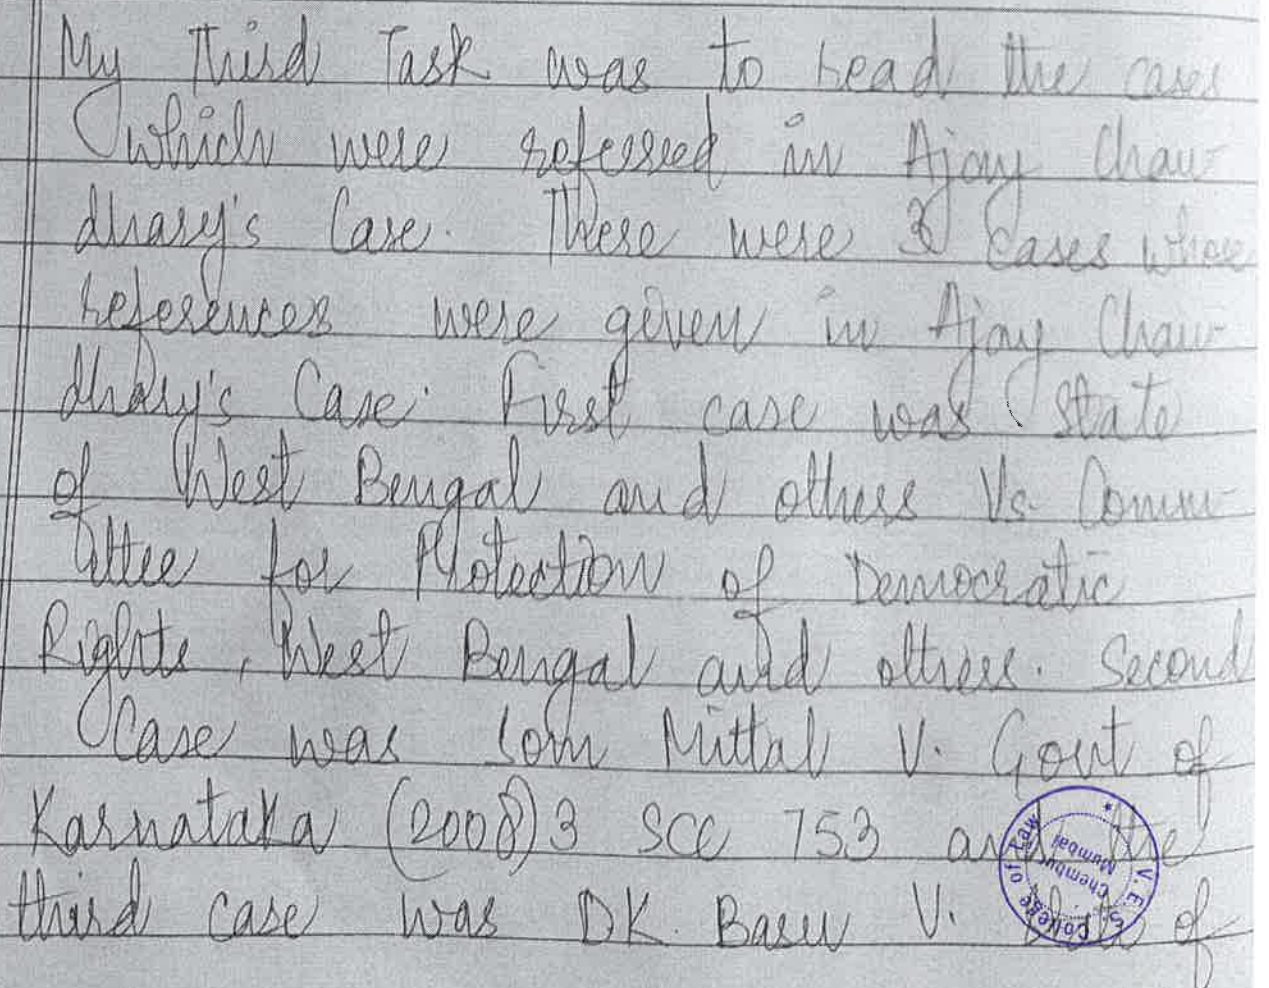 My third Task was to read the cases
which were referred in Ajay Chau-
dhary's Case. There were 3 Cases whose
references were given in Ajay Chau-
dhary's Case. First case was State
of West Bengal and others Vs. Comm-
ittee for Protection of Democratic
Rights, West Bengal and others. Second
Case was Som Mittal V. Govt of
Karnataka (2008) 3 SCC 753 and the
third case was DK. Basu V. State of
V. E. S. College of Law
Chembur
Mumbai